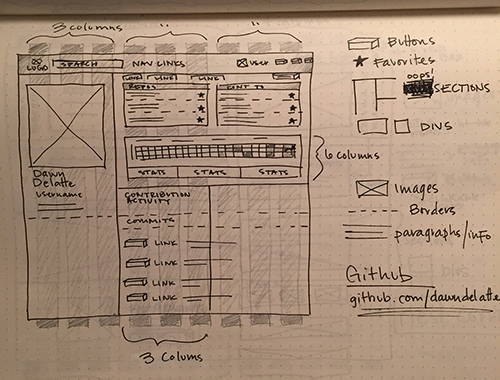 3 columns " "
LOGO SEARCH NAV LINKS USER
LINK LINK LINK
REPOS CONT TO
STATS STATS STATS
6 columns
Dawn
Delatte
username
CONTRIBUTION
ACTIVITY
COMMITS
LINK
LINK
LINK
LINK
3 Colums
Buttons
Favorites
OOPS!
SECTIONS
DIVS
Images
Borders
paragraphs/info
Github
github.com/dawndelatte